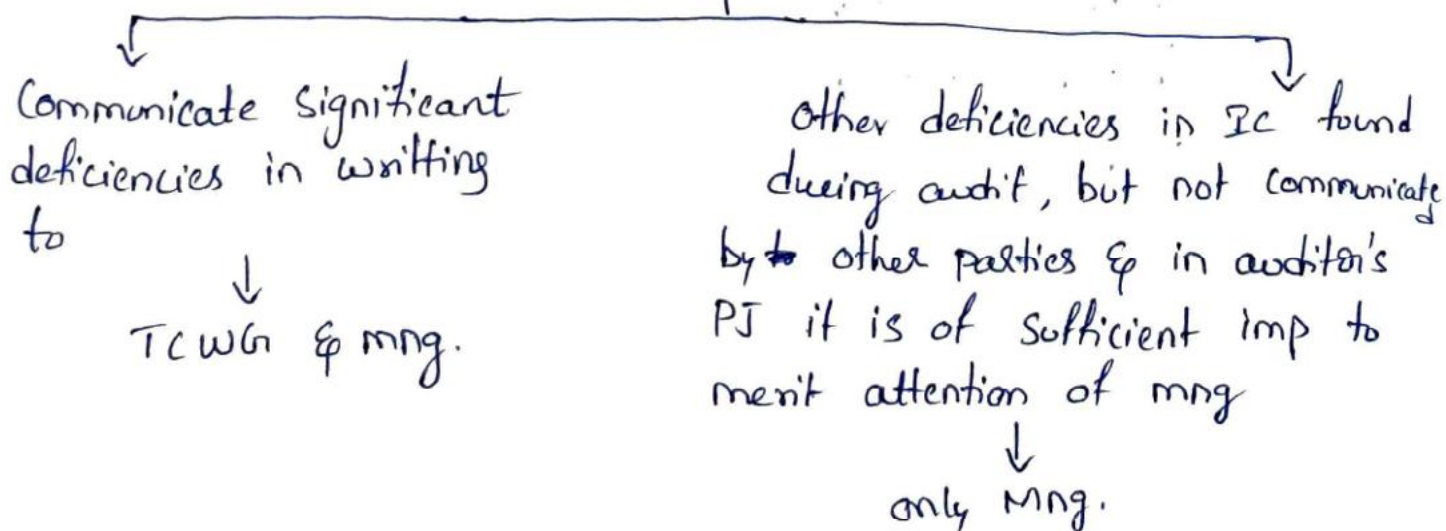 Communicate significant
deficiencies in writting
to
TCWG & mng.
other deficiencies in IC found
dueing audit, but not communicated
by to other parties & in auditor's
PJ it is of sufficient imp to
merit attention of mng
only Mng.